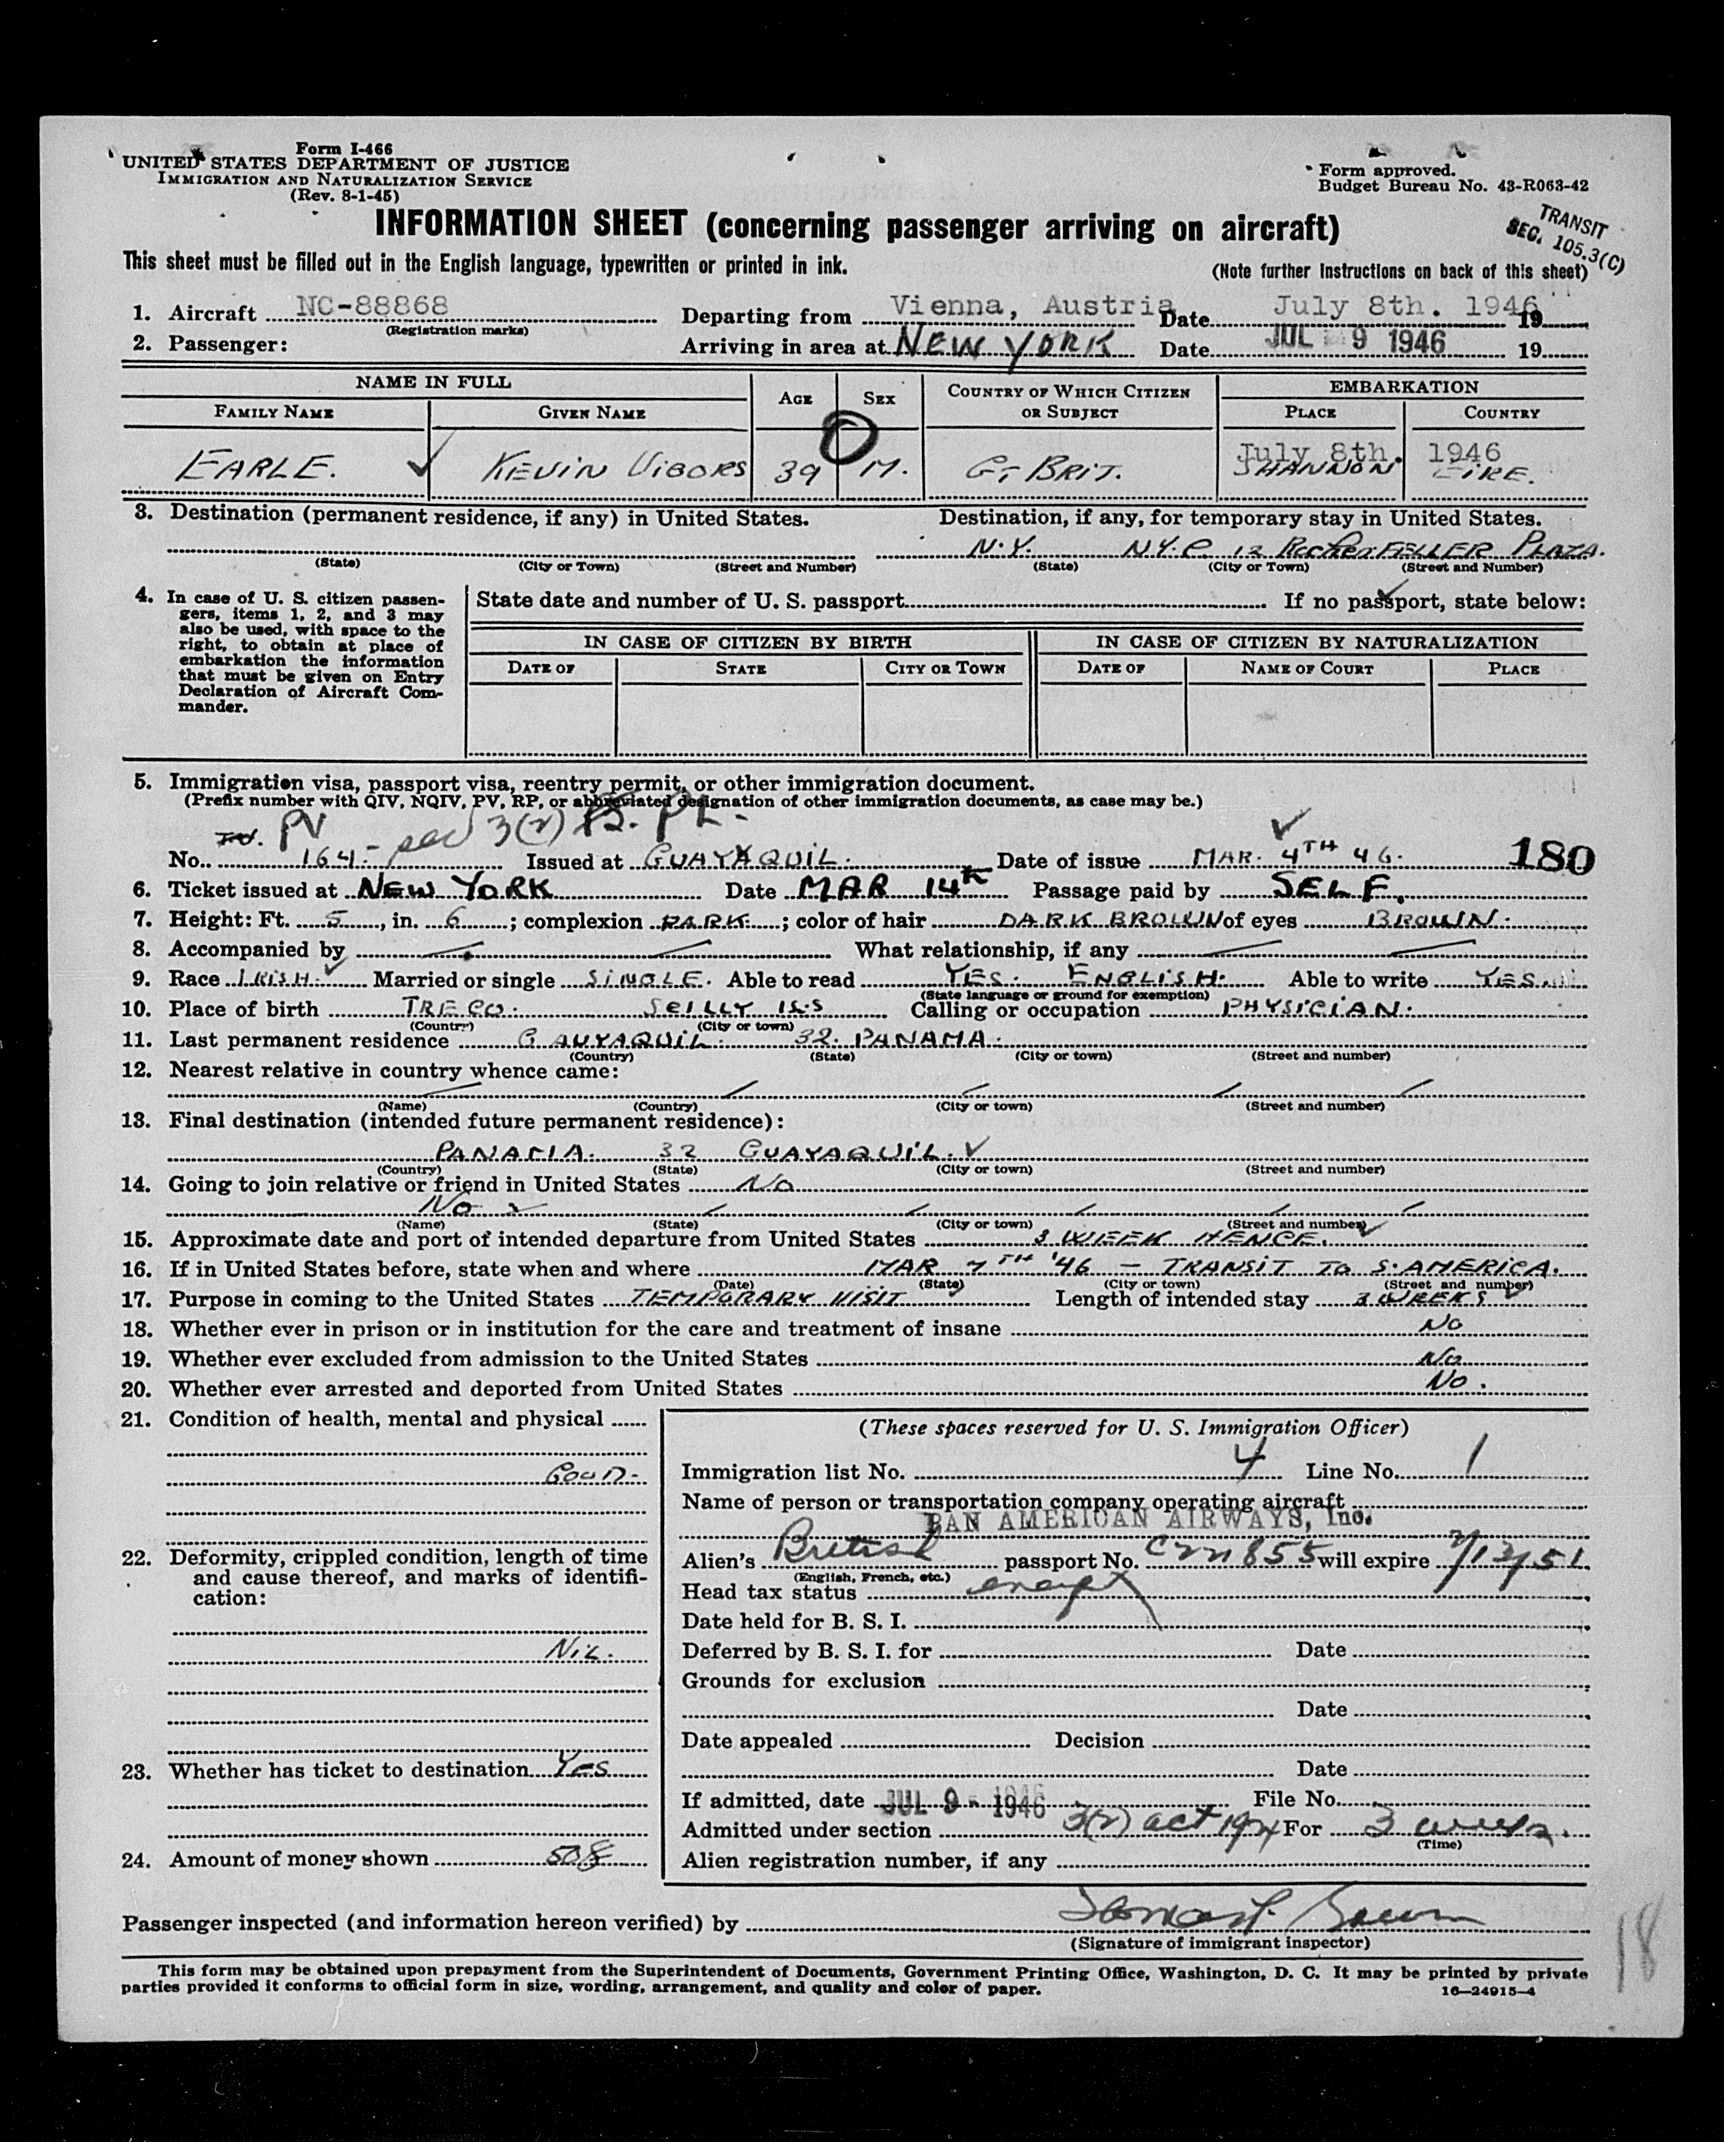 Form I-466
UNITED STATES DEPARTMENT OF JUSTICE
IMMIGRATION AND NATURALIZATION SERVICE
(Rev. 8-1-45)
Form approved.
Budget Bureau No. 43-R063-42
INFORMATION SHEET (concerning passenger arriving on aircraft)
TRANSIT
SEC. 105.3(C)
This sheet must be filled out in the English language, typewritten or printed in ink.
(Note further instructions on back of this sheet)
1. Aircraft NC-88868 Departing from Vienna, Austria Date July 8th. 1946 19
(Registration marks)
2. Passenger: Arriving in area at NEW YORK Date JUL 9 1946 19
NAME IN FULL AGE SEX COUNTRY OF WHICH CITIZEN OR SUBJECT EMBARKATION
FAMILY NAME GIVEN NAME PLACE COUNTRY
July 8th. 1946
EARLE. KEVIN VIBORS 39 M. GT BRIT. SHANNON EIRE.
3. Destination (permanent residence, if any) in United States. Destination, if any, for temporary stay in United States.
N.Y. N.Y.C 12 ROCKEFELLER PLAZA.
(State) (City or Town) (Street and Number) (State) (City or Town) (Street and Number)
4. In case of U. S. citizen passen-
gers, items 1, 2, and 3 may
also be used, with space to the
right, to obtain at place of
embarkation the information
that must be given on Entry
Declaration of Aircraft Com-
mander.
State date and number of U. S. passport If no passport, state below:
IN CASE OF CITIZEN BY BIRTH IN CASE OF CITIZEN BY NATURALIZATION
DATE OF STATE CITY OR TOWN DATE OF NAME OF COURT PLACE
5. Immigration visa, passport visa, reentry permit, or other immigration document.
(Prefix number with QIV, NQIV, PV, RP, or abbreviated designation of other immigration documents, as case may be.)
PV 3(2) P2.
No. 164 Issued at GUAYAQUIL. Date of issue MAR. 4TH 46. 180
6. Ticket issued at NEW YORK Date MAR 14th Passage paid by SELF.
7. Height: Ft. 5, in. 6; complexion DARK; color of hair DARK BROWN of eyes BROWN.
8. Accompanied by What relationship, if any
9. Race IRISH. Married or single SINGLE. Able to read YES. ENGLISH. Able to write YES
(State language or ground for exemption)
10. Place of birth TRECO. SCILLY IS.S Calling or occupation PHYSICIAN.
(Country) (City or town)
11. Last permanent residence GAUYAQUIL. 32. PANAMA.
(Country) (State) (City or town) (Street and number)
12. Nearest relative in country whence came:
(Name) (Country) (City or town) (Street and number)
13. Final destination (intended future permanent residence):
PANAMA. 32 GUAYAQUIL.
(Country) (State) (City or town) (Street and number)
14. Going to join relative or friend in United States No
No
(Name) (State) (City or town) (Street and number)
15. Approximate date and port of intended departure from United States 3 WEEK HENCE.
16. If in United States before, state when and where MAR 7TH '46 - TRANSIT TO S. AMERICA.
(Date) (State) (City or town) (Street and number)
17. Purpose in coming to the United States TEMPORARY VISIT Length of intended stay 3 WEEKS
18. Whether ever in prison or in institution for the care and treatment of insane No
19. Whether ever excluded from admission to the United States No
20. Whether ever arrested and deported from United States No.
21. Condition of health, mental and physical
GOOD.
22. Deformity, crippled condition, length of time
and cause thereof, and marks of identifi-
cation:
NIL.
23. Whether has ticket to destination YES
24. Amount of money shown 50$
(These spaces reserved for U. S. Immigration Officer)
Immigration list No. 4 Line No. 1
Name of person or transportation company operating aircraft
PAN AMERICAN AIRWAYS, Inc.
Alien's British passport No. C221855 will expire 7/12/51
(English, French, etc.)
Head tax status exempt
Date held for B. S. I.
Deferred by B. S. I. for Date
Grounds for exclusion
Date
Date appealed Decision
Date
If admitted, date JUL 9 - 1946 File No.
Admitted under section 3(2) act 1924 For 3 weeks.
(Time)
Alien registration number, if any
Passenger inspected (and information hereon verified) by
(Signature of immigrant inspector)
18
This form may be obtained upon prepayment from the Superintendent of Documents, Government Printing Office, Washington, D. C. It may be printed by private
parties provided it conforms to official form in size, wording, arrangement, and quality and color of paper.
16—24915-4